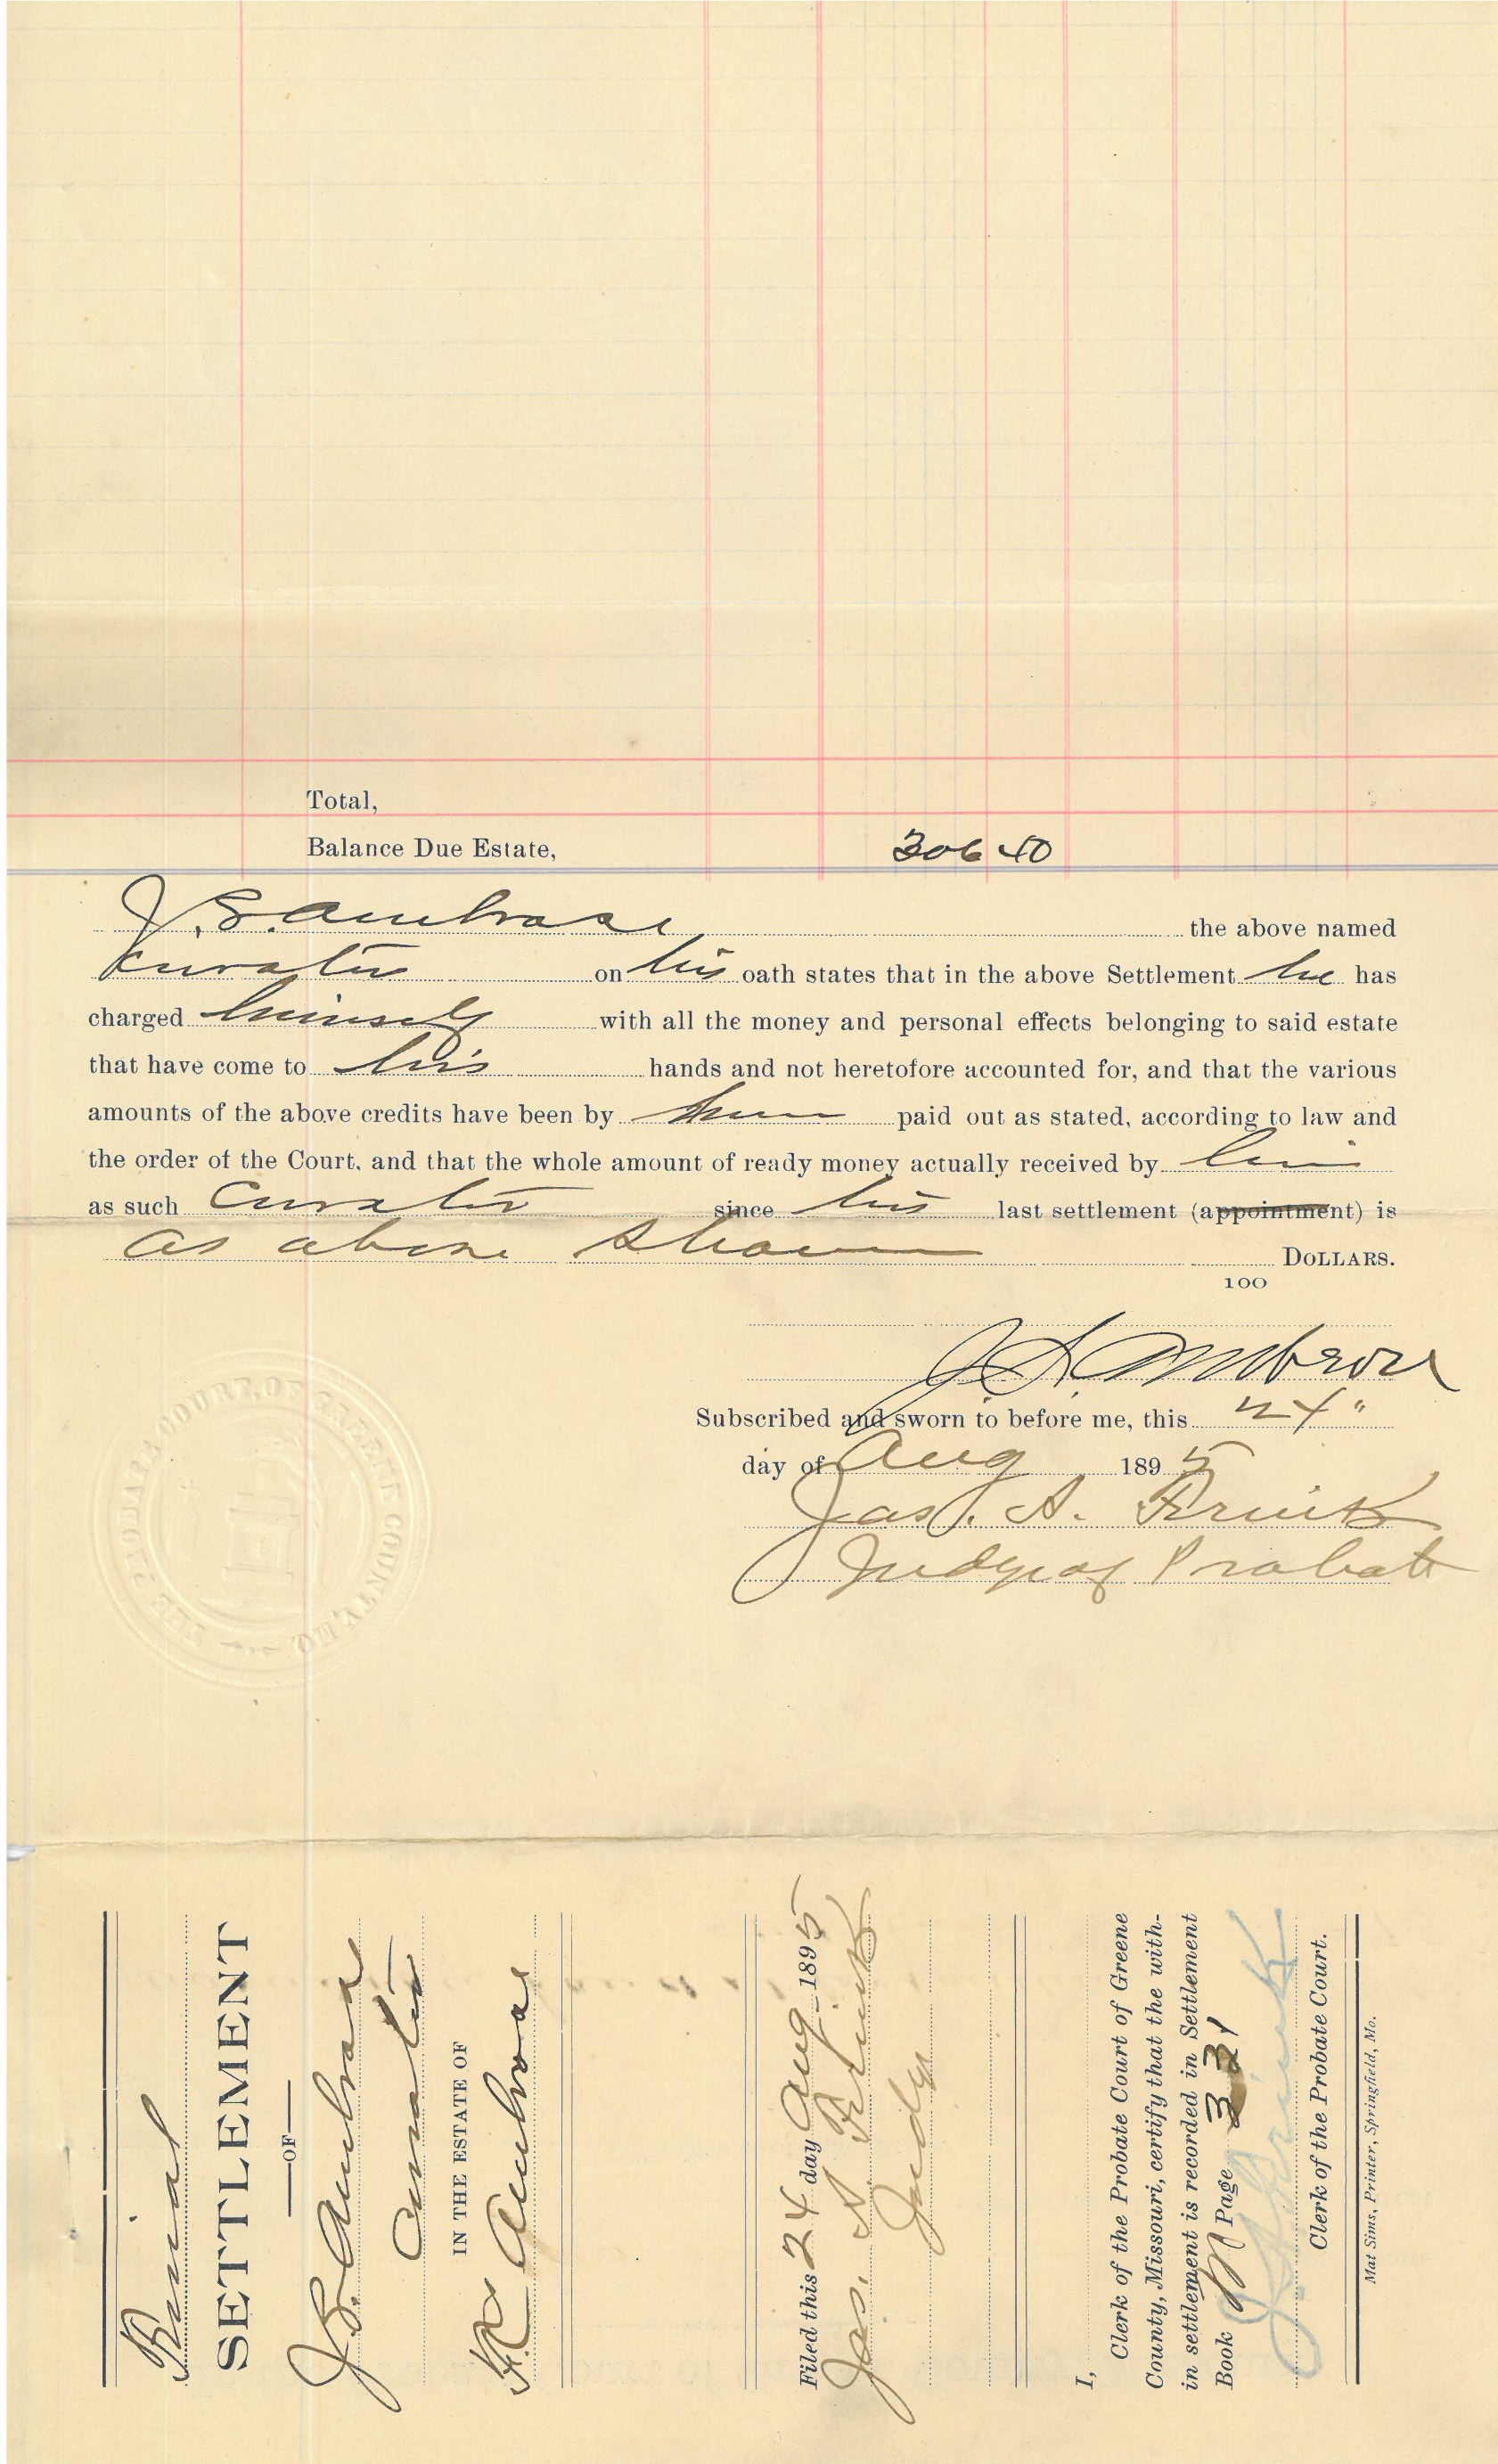 Total,
Balance Due Estate, 306 40
J. S. Ambrose the above named
Curator on his oath states that in the above Settlement he has
charged himself with all the money and personal effects belonging to said estate
that have come to his hands and not heretofore accounted for, and that the various
amounts of the above credits have been by him paid out as stated, according to law and
the order of the Court, and that the whole amount of ready money actually received by him
as such Curator since his last settlement (appointment) is
as above shown DOLLARS.
100
J. S. Ambrose
Subscribed and sworn to before me, this 24"
day of Aug 1895
Jas. A. Frink
Judge of Probate
THE PROBATE COURT, OF GREENE COUNTY, MO.
Final
SETTLEMENT
—OF—
J. S. Ambrose
Curator
IN THE ESTATE OF
Ambrose
Filed this 24 day Aug 1895
Jas. A. Frink
Judge
I,
Clerk of the Probate Court of Greene
County, Missouri, certify that the with-
in settlement is recorded in Settlement
Book M Page 331
J. A. Frink
Clerk of the Probate Court.
Mat Sims, Printer, Springfield, Mo.